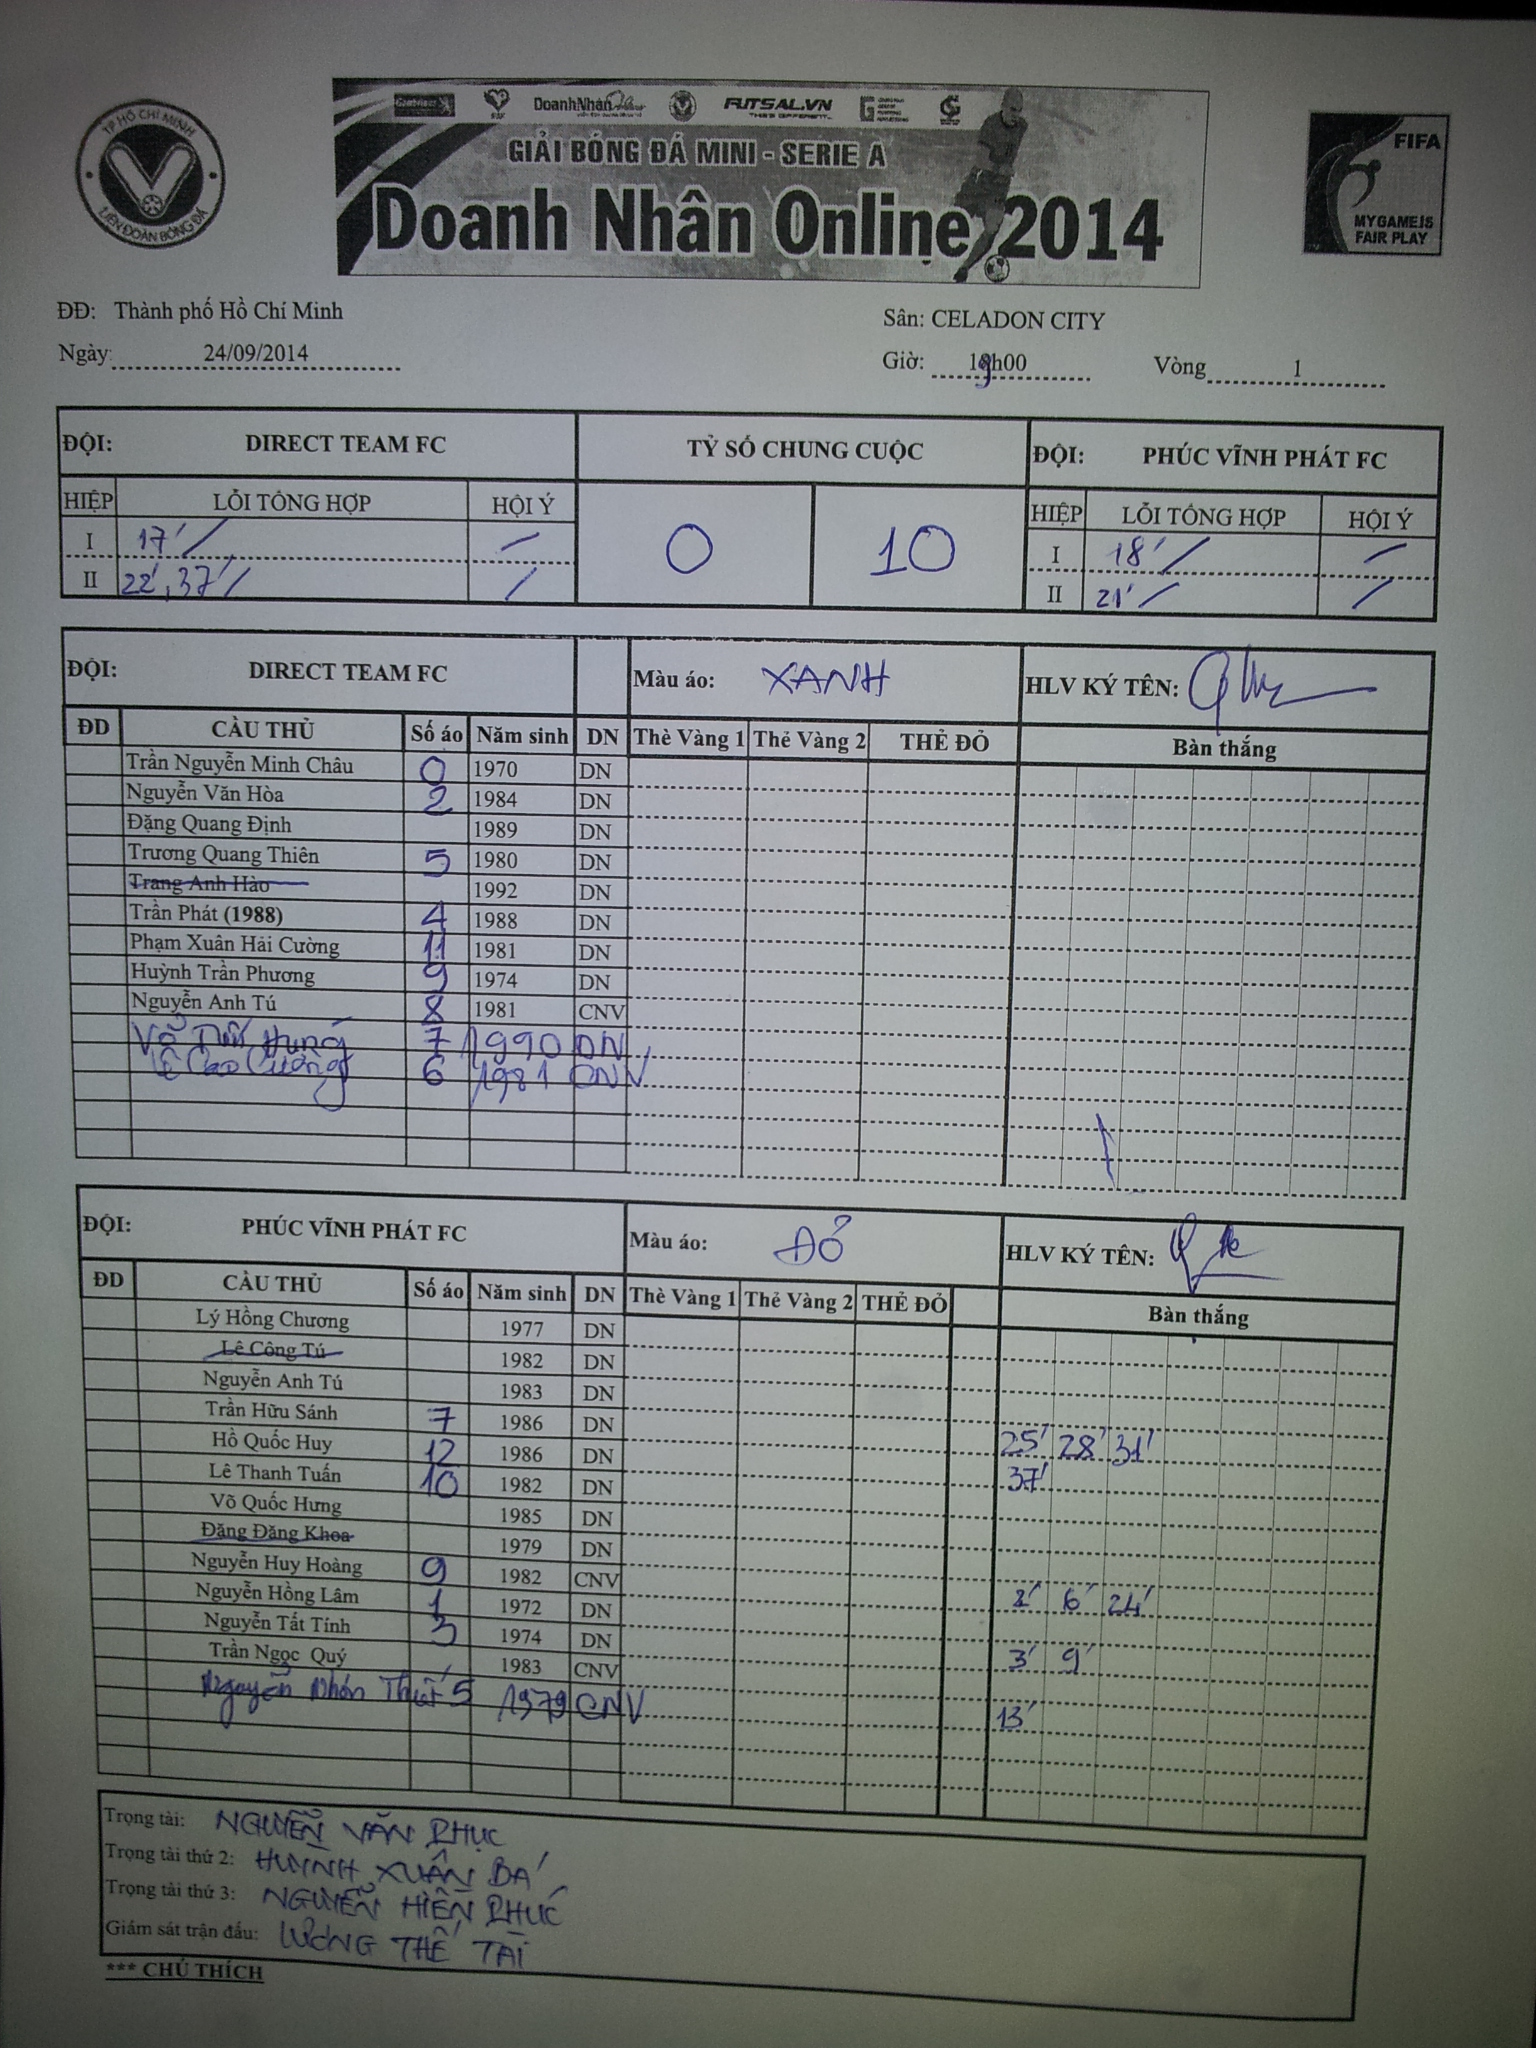 TP HỒ CHÍ MINH
LIÊN ĐOÀN BÓNG ĐÁ
DoanhNhân FUTSAL.VN
GIẢI BÓNG ĐÁ MINI - SERIE A
Doanh Nhân Online 2014
FIFA
MY GAME IS
FAIR PLAY
ĐĐ: Thành phố Hồ Chí Minh Sân: CELADON CITY
Ngày: 24/09/2014 Giờ: 19h00 Vòng 1
ĐỘI: DIRECT TEAM FC TỶ SỐ CHUNG CUỘC ĐỘI: PHÚC VĨNH PHÁT FC
HIỆP LỖI TỔNG HỢP HỘI Ý 0 10 HIỆP LỖI TỔNG HỢP HỘI Ý
I 17' / / I 18' / /
II 22', 37' / / II 21' / /
ĐỘI: DIRECT TEAM FC Màu áo: XANH HLV KÝ TÊN:
ĐD CẦU THỦ Số áo Năm sinh DN Thẻ Vàng 1 Thẻ Vàng 2 THẺ ĐỎ Bàn thắng
Trần Nguyễn Minh Châu 0 1970 DN
Nguyễn Văn Hòa 2 1984 DN
Đặng Quang Định 1989 DN
Trương Quang Thiên 5 1980 DN
Trang Anh Hào 1992 DN
Trần Phát (1988) 4 1988 DN
Phạm Xuân Hải Cường 11 1981 DN
Huỳnh Trần Phương 9 1974 DN
Nguyễn Anh Tú 8 1981 CNV
Võ Hưng 7 1990 DN
Lê Cao Cường 6 1981 CNV
ĐỘI: PHÚC VĨNH PHÁT FC Màu áo: ĐỎ HLV KÝ TÊN:
ĐD CẦU THỦ Số áo Năm sinh DN Thẻ Vàng 1 Thẻ Vàng 2 THẺ ĐỎ Bàn thắng
Lý Hồng Chương 1977 DN
Lê Công Tú 1982 DN
Nguyễn Anh Tú 1983 DN
Trần Hữu Sánh 7 1986 DN 25' 28' 31'
Hồ Quốc Huy 12 1986 DN 37'
Lê Thanh Tuấn 10 1982 DN
Võ Quốc Hưng 1985 DN
Đặng Đăng Khoa 1979 DN
Nguyễn Huy Hoàng 9 1982 CNV 2' 6' 24'
Nguyễn Hồng Lâm 1 1972 DN
Nguyễn Tất Tính 3 1974 DN 3' 9'
Trần Ngọc Quý 1983 CNV
Nguyễn 5 1979 CNV 13'
Trọng tài: NGUYỄN VĂN PHỤC
Trọng tài thứ 2: HUỲNH XUÂN BÁ
Trọng tài thứ 3: NGUYỄN HIỀN PHÚC
Giám sát trận đấu: LƯƠNG THẾ TÀI
*** CHÚ THÍCH